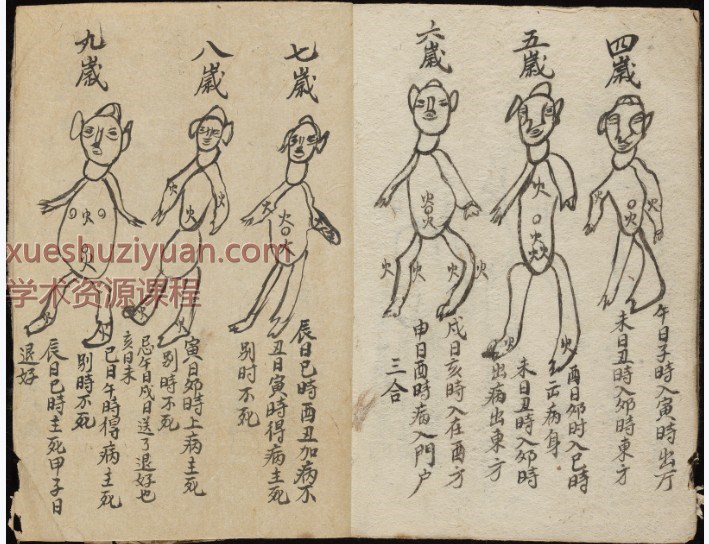 四歲
午日子時入寅時出厅
未日丑時入夘時東方
五歲
酉日夘时入巳時
出病身
未日丑時入夘時
出病出東方
六歲
戌日亥時入在酉方
申日酉時病入門户
三合
七歲
辰日巳時酉丑加病不
丑日寅時得病主死
别時不死
八歲
寅日夘時上病主死
别時不死
忌午日戌日送了退好也
亥日未
九歲
巳日午時得病主死
别時不死
辰日巳時主死甲子日
退好
xueshuziyuan.com
学术资源课程